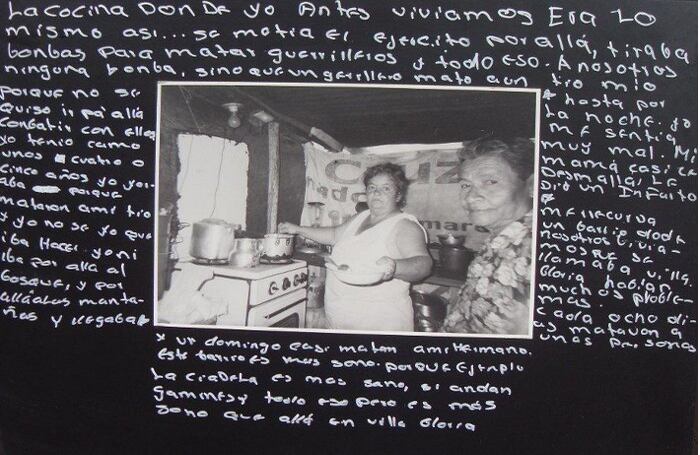 La cocina donde yo Antes viviamos Era Lo
mismo asi... se metia el ejercito por allá, tiraba
bonbas para matar guerrilleros y todo eso. A nosotros
ninguna bonba, sino que un gerrillero mato a un tio mio
porque no se
quiso ir pa'allá
conbatir con ellos
yo tenio como
unos cuatro o
cinco años yo yo-
aba porque
mataron ami tio
y yo no se yo que
iba Hacer. yo ni
iba por allá al
bosque, y por
allá a las monta-
ñas y llegaba
hasta por
La noche. yo
me sentia
muy mal. Mi
mamá casi se
Desmalla, Le
Dio un Infarto
un barrio donde
nosotros vivia-
mos que se
llamaba villa
Gloria habian
muchos proble-
mas.
cada ocho di-
as mataban a
unas personas
y un domingo casi matan ami Hermano.
Este barrio es mas sano. porque Ejemplo
La ciadela es mas sano, si andan
gammes y todo eso pero es más
sono que allá en villa Gloria
Cruz